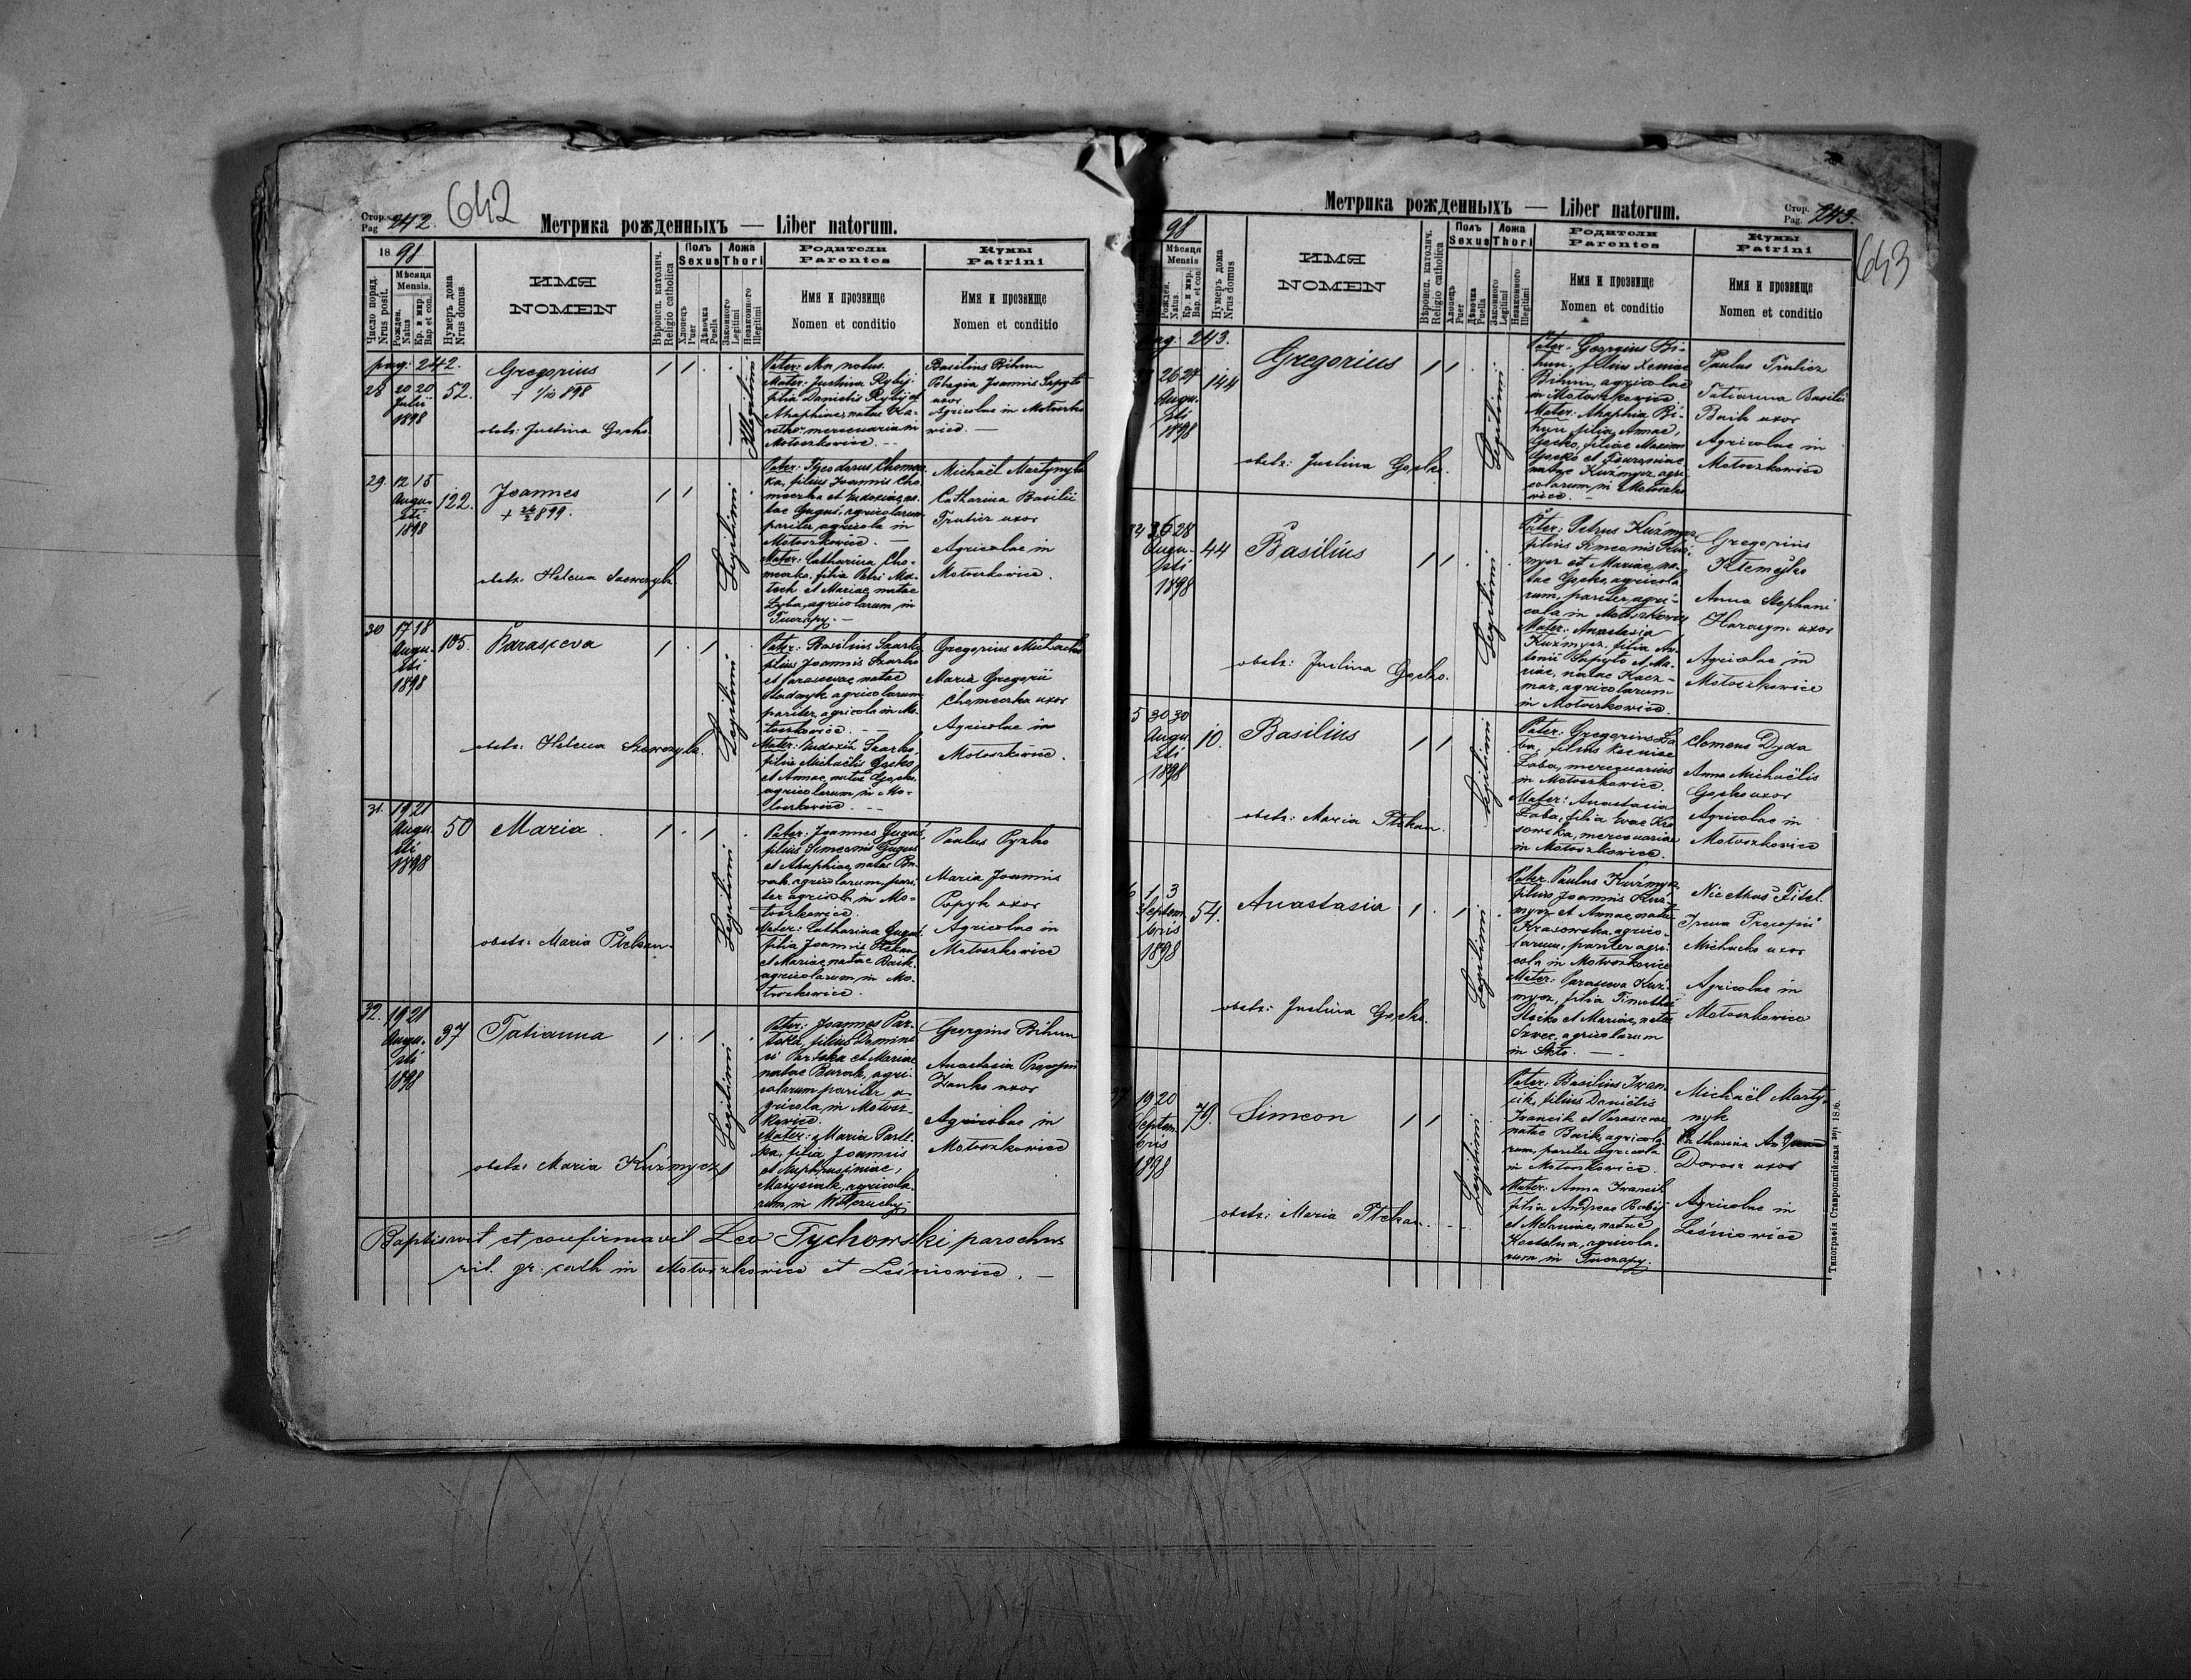 Стор. Pag. 242.
642
Метрика рожденныхъ — Liber natorum.
18 98
Число поряд. Nrus posit.
Мѣсяця Mensis.
Рожден. Natus
Кр. и мѵр. Bap. et con.
Нумеръ дома Nrus domus.
ИМЯ
NOMEN
Вѣроисп. католич. Religio catholica
Полъ Sexus
Хлопець Puer
Дѣвочка Puella
Ложа Thori
Законного Legitimi
Незаконного Illegitimi
Родители Parentes
Имя и прозвище
Nomen et conditio
Кумы Patrini
Имя и прозвище
Nomen et conditio
pag: 242.
28 20 20
Julii
1898
52.
Gregorius
+ 1/10 898
obstz: Justina Gocko.
Illegitimi
Pater: Non notus.
Mater: Justina Rybij
filia Danielis Rybij et
Ahaphiae, natae
mercenaria in
Motoszkowice. —
Basilius Bihun
Pelagia Joannis Sapyto
uxor
Agricolae in Motoszko
wice. —
29. 12 15
Augu-
sti
1898
122.
Joannes
+ 24/2 899.
obstz: Helena Szewczyk.
Legitimi
Pater: Theodorus Chomec-
ka, filius Joannis Cho-
meczka et Eudoxiae, na-
tae Guguś, agricolarum
pariter agricola in
Motoszkowice. —
Mater: Catharina Cho-
meczka, filia Petri Ma-
toch et Mariae, natae
Zyba, agricolarum, in
Tuczapy. —
Michaël Martynyk
Catharina Basilii
Trutiez uxor
Agricolae in
Motoszkowice.
30 17 18
Augu-
sti
1898
105.
Parasceva
obstz: Helena Szewczyk.
Legitimi
Pater: Basilius Szarko
filius Joannis Szarko
et Parascevae, natae
Stadnyk agricolarum
pariter, agricola in Mo-
toszkowice. —
Mater: Eudoxia Szarko,
filia Michaëlis Gocko
et Annae, natae Gocko,
agricolarum, in Mo-
toszkowice. —
Gregorius Michacko
Maria Gregorii
Chomeczka uxor
Agricolae in
Motoszkowice.
31. 19 21
Augu
sti
1898
50
Maria.
obstz: Maria Ptekan.
Legitimi
Pater: Joannes Guguś,
filius Simeonis Guguś
et Ahaphiae, natae Bu-
rak, agricolarum, pari-
ter agricola in Mo-
toszkowice.
Mater: Catharina Guguś
filia Joannis Ptekan
et Mariae, natae Baik,
agricolarum, in Mo-
toszkowice.
Paulus Pyzko
Maria Joannis
Popyk uxor
Agricolae in
Motoszkowice
32. 19 21
Augu-
sti
1898
37
Tatianna
obstz: Maria Kuźmycz
Legitimi
Pater: Joannes Par-
tyka, filius
Partyka et Mariae
natae Burak, agri-
colarum pariter a-
gricola, in Motosz
kowice.
Mater: Maria Party-
ka, filia Joannis
et Euphrosiniae,
Marysiuk, agricola-
rum, in
Georgius Bihun
Anastasia Procopii
Zanko uxor
Agricolae in
Motoszkowice
Baptisavit et confirmavit Leo Tychowski parochus
rit. gr. cath in Motoszkowice et Leśniowice. —
Метрика рожденныхъ — Liber natorum.
Стор. Pag. 243.
643
98
Мѣсяця Mensis
Рожден. Natus
Кр. и мѵр. Bap. et con.
Нумеръ дома Nrus domus
ИМЯ
NOMEN
Вѣроисп. католич. Religio catholica
Полъ Sexus
Хлопець Puer
Дѣвочка Puella
Ложа Thori
Законного Legitimi
Незаконного Illegitimi
Родители Parentes
Имя и прозвище
Nomen et conditio
Кумы Patrini
Имя и прозвище
Nomen et conditio
pag: 243.
26 27
Augu-
sti
1898
144
Gregorius
obstz: Justina Gocko.
Legitimi
Pater: Georgius Bi-
hun, filius Xeniae
Bihun, agricolae
in Motoszkowice.
Mater: Ahaphia Bi-
hun, filia Annae,
Gocko, filiae Maximi
Gocko et
natae Kuźmycz, agri-
colarum, in Motoszko
wice. —
Paulus Trutiez
Tatianna Basilii
Baik uxor
Agricolae in
Motoszkowice
28
Augu-
sti
1898
44
Basilius
obstz: Justina Gocko.
Legitimi
Pater: Petrus Kuźmycz
filius Simeonis Kuź-
mycz et Mariae, na-
tae Gocko, agricola
rum, pariter agri-
cola in Motoszkowice
Mater: Anastasia
Kuźmycz, filia An-
tonii Sapyto et Ma-
riae, natae Kacz-
mar, agricolarum
in Motoszkowice.
Gregorius
Klemejko
Anna Stephani
Harasym uxor
Agricolae in
Motoszkowice
5 30 30
Augu
sti
1898
10.
Basilius
obstz: Maria Ptekan.
Legitimi
Pater: Gregorius Za-
ba, filius Xeniae
Zaba, mercenarius
in Motoszkowice.
Mater: Anastasia
Zaba, filia Evae Kra
sowska, mercenariae
in Motoszkowice.
Clemens Dyda
Anna Michaëlis
Gocko uxor
Agricolae in
Motoszkowice
6 1 3
Septem
bris
1898
54.
Anastasia
obstz: Justina Gocko.
Legitimi
Pater: Paulus Kuźmycz
filius Joannis Kuź-
mycz et Annae, natae
Krasowska, agrico-
larum, pariter agri-
cola in Motoszkowice
Mater: Parasceva Kuź-
mycz, filia Timothei
et Mariae, natae
Szwec, agricolarum
in
Nicolaus Fitel.
Irena Procopii
Michacko uxor
Agricolae in
Motoszkowice
37 19 20
Septem
bris
1898
79.
Simeon
obstz: Maria Ptekan.
Legitimi
Pater: Basilius Iwan-
cik, filius Daniëlis
Iwancik et Parascevae
natae Baik, agricola-
rum, pariter agricola
in Motoszkowice.
Mater: Anna Iwancik
filia Andreae Babij
et Melaniae, natae
Kostelna, agricola-
rum in Tuczapy.
Michaël Marty-
nyk
Catharina
Dorosz uxor
Agricolae in
Leśniowice
Типографія Ставропигійская